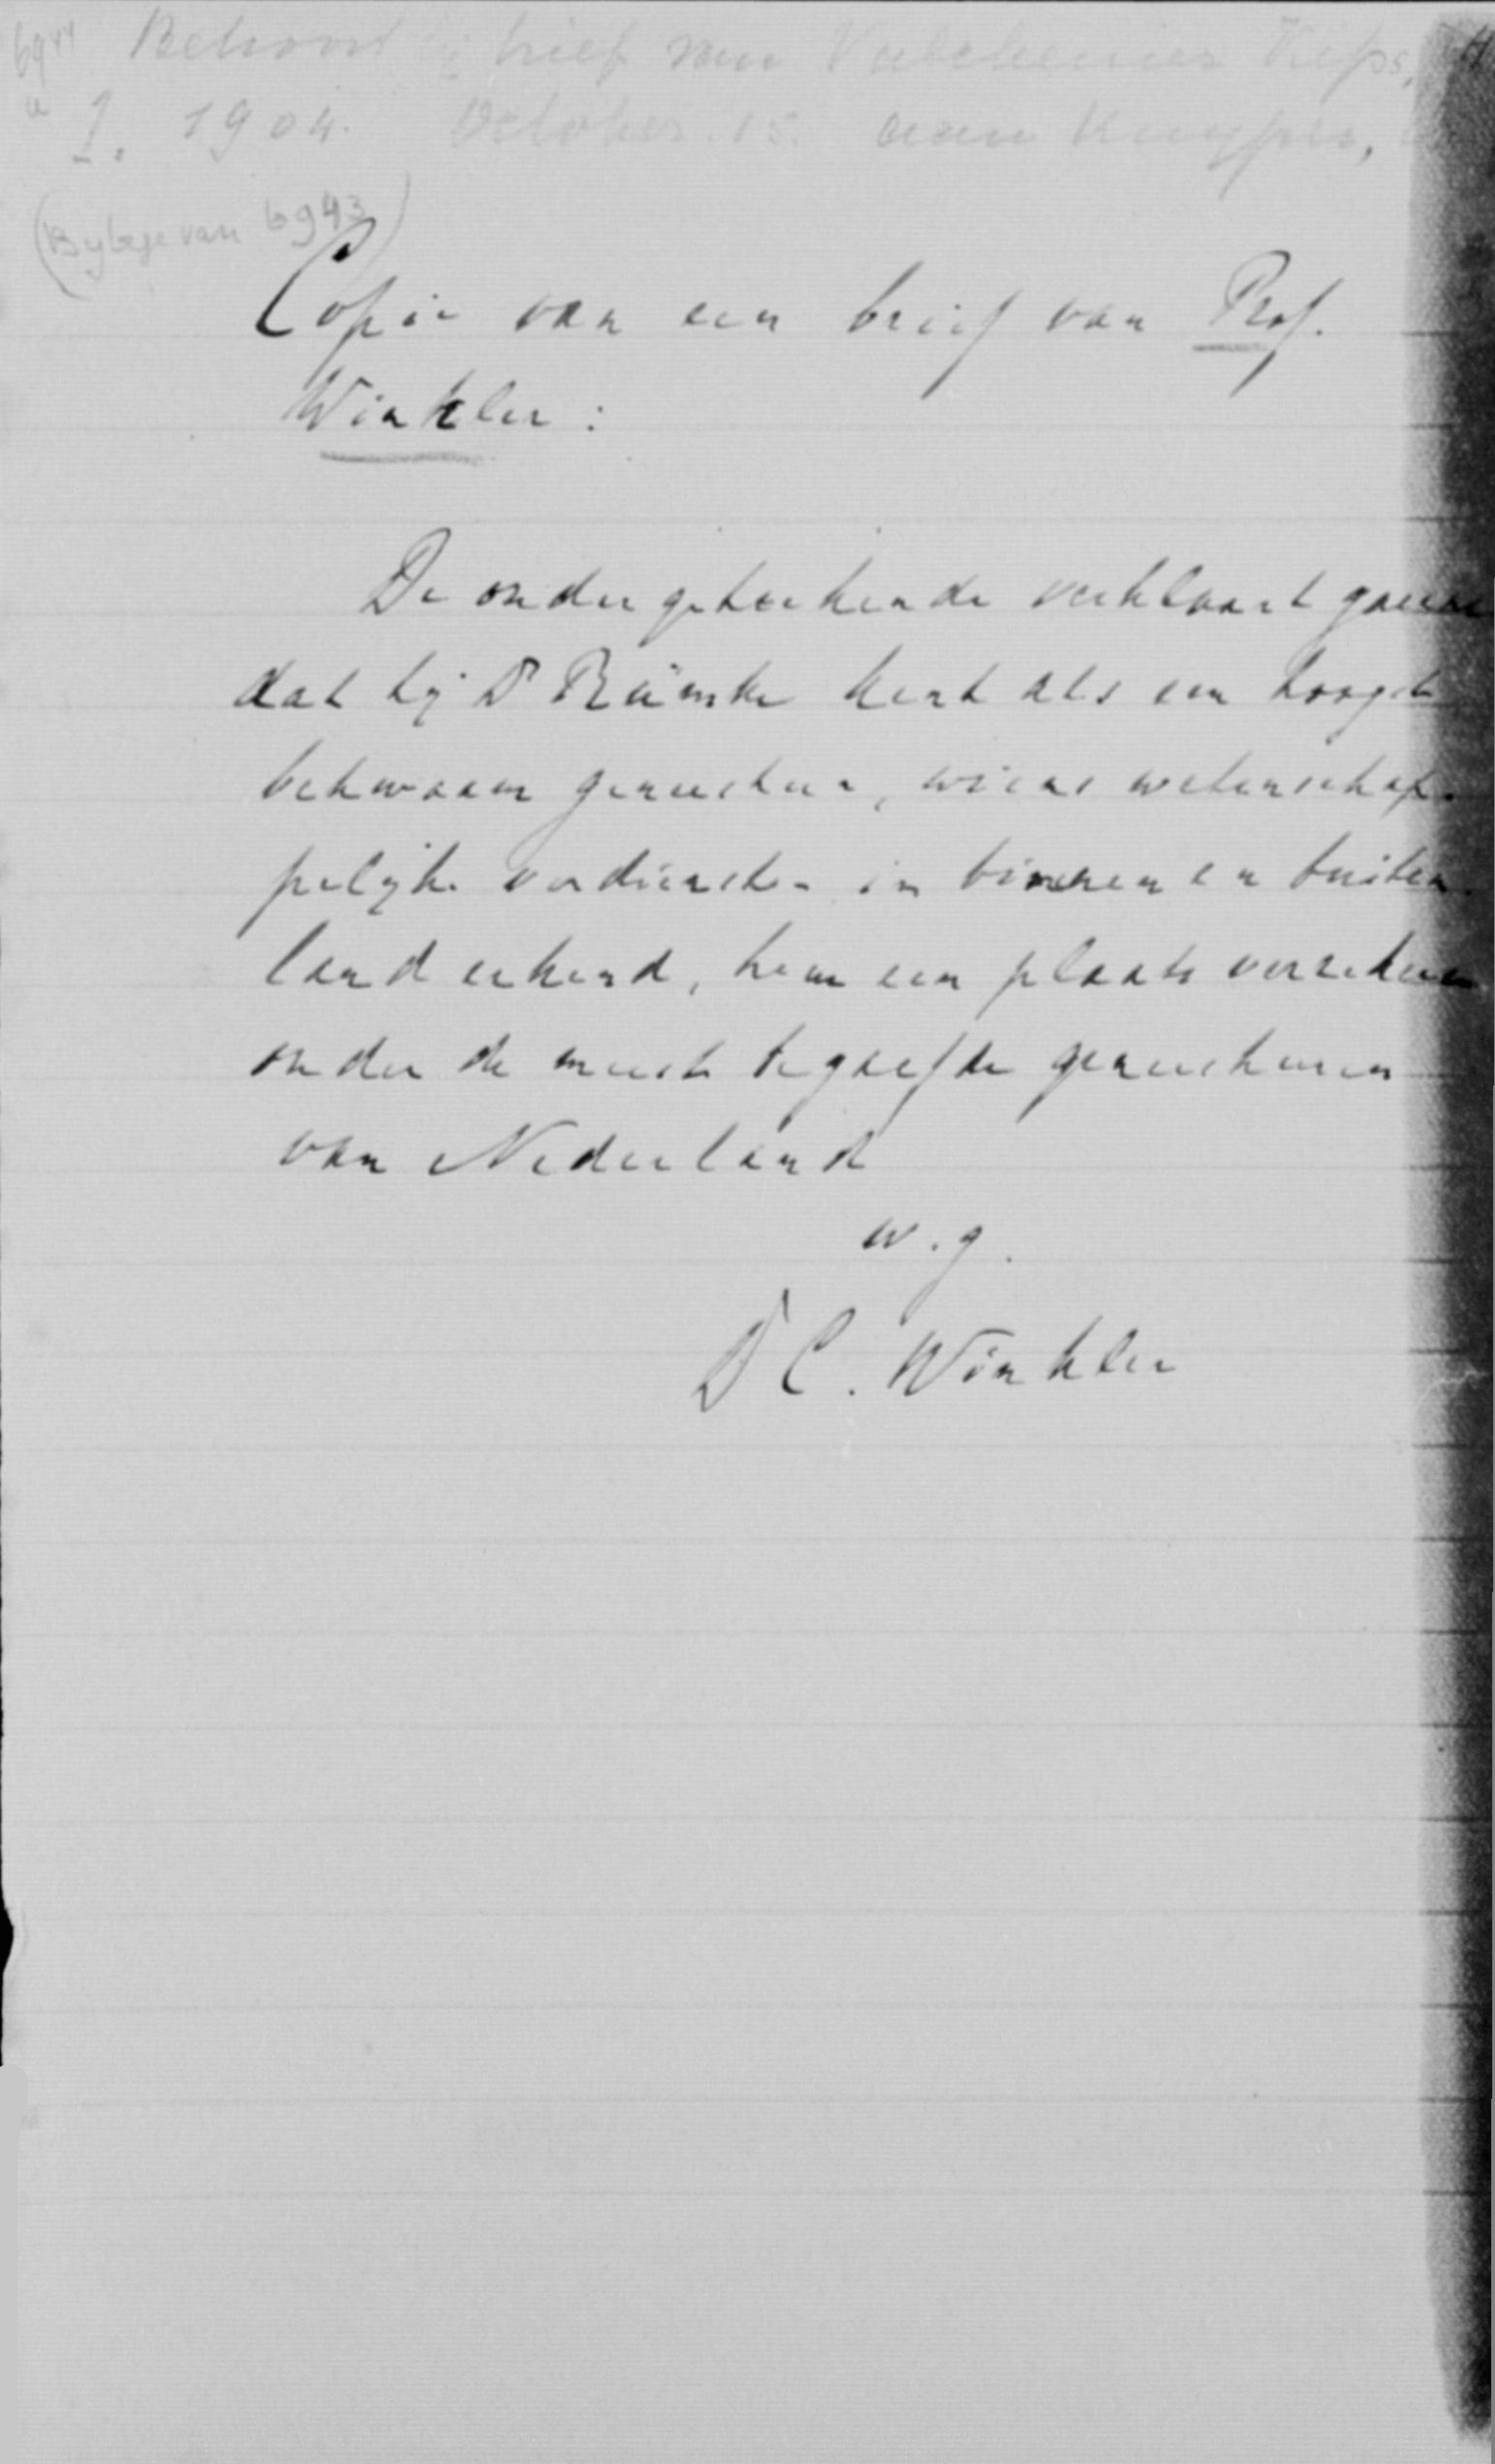 Behoort bij brief van
I. 1904. October. 15. aan Kuyper,
(Bylage van 6943)
Copie van een brief van Prof.
Winkler:
De ondergeteekende verklaart gaarne
dat hij Dr Rümke kent als een hoogst
bekwaam geneesheer, wiens wetenschap-
pelijke verdiensten in binnen en buiten-
land erkend, hem een plaats verzekeren
onder de meest begaafde geneesheeren
van Nederland
w.g.
Dr C. Winkler